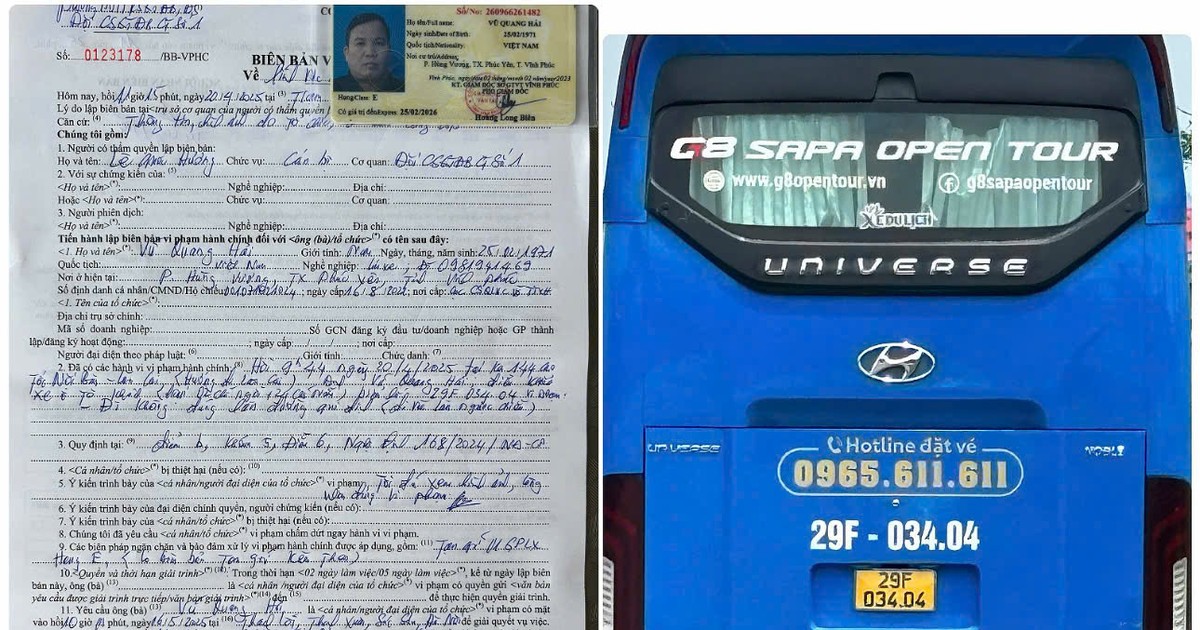 Đội CSGT ĐB Số 1
Số: 0123178 /BB-VPHC
BIÊN BẢN V
Về
Số/No: 260966261482
Họ tên/Full name: VŨ QUANG HẢI
Ngày sinh/Date of Birth: 25/02/1971
Quốc tịch/Nationality: VIỆT NAM
Nơi cư trú/Address:
P. Hùng Vương, TX. Phúc Yên, T. Vĩnh Phúc
Vĩnh Phúc, ngày/date 02 tháng/month 02 năm/year 2023
KT. GIÁM ĐỐC SỞ GTVT VĨNH PHÚC
PHÓ GIÁM ĐỐC
Hoàng Long Biên
Hạng/Class: E
Có giá trị đến/Expires: 25/02/2026
Hôm nay, hồi 11 giờ 15 phút, ngày 20/4/2025 tại (3)
Lý do lập biên bản tại <trụ sở cơ quan của người có thẩm quyền
Căn cứ: (4)
Chúng tôi gồm:
1. Người có thẩm quyền lập biên bản:
Họ và tên: Chức vụ: Cán bộ Cơ quan: Đội CSGT ĐB Số 1
2. Với sự chứng kiến của: (5)
<Họ và tên>(*): Nghề nghiệp: Địa chỉ:
Hoặc <Họ và tên>(*): Chức vụ: Cơ quan:
3. Người phiên dịch:
<Họ và tên>(*): Nghề nghiệp: Địa chỉ:
Tiến hành lập biên bản vi phạm hành chính đối với <ông (bà)/tổ chức>(*) có tên sau đây:
<1. Họ và tên>(*): Vũ Quang Hải Giới tính: Nam Ngày, tháng, năm sinh: 25/02/1971
Quốc tịch: Việt Nam Nghề nghiệp: Lái xe
Nơi ở hiện tại: P. Hùng Vương, TX Phúc Yên, Tỉnh Vĩnh Phúc
Số định danh cá nhân/CMND/Hộ chiếu: ; ngày cấp: 16/8/2022; nơi cấp:
<1. Tên của tổ chức>(*):
Địa chỉ trụ sở chính:
Mã số doanh nghiệp: Số GCN đăng ký đầu tư/doanh nghiệp hoặc GP thành
lập/đăng ký hoạt động: ; ngày cấp: / / ; nơi cấp:
Người đại diện theo pháp luật: (6) Giới tính: Chức danh: (7)
2. Đã có các hành vi vi phạm hành chính: (8) Hồi 9h44 ngày 20/4/2025 tại km 144 cao
tốc Nội Bài - Lào Cai, (Hướng đi Lào Cai) Vũ Quang Hải, điều khiển
xe ô tô khách 29F 034.04
- Đi không đúng làn đường quy định
3. Quy định tại: (9) Điểm b, Khoản 5, Điều 6, Nghị định 168/2024/NĐ-CP
4. <Cá nhân/tổ chức>(*) bị thiệt hại (nếu có): (10)
5. Ý kiến trình bày của <cá nhân/người đại diện của tổ chức>(*) vi phạm: Tôi đã xem hình ảnh, công
nhận đúng vi phạm
6. Ý kiến trình bày của đại diện chính quyền, người chứng kiến (nếu có):
7. Ý kiến trình bày của <cá nhân/tổ chức>(*) bị thiệt hại (nếu có):
8. Chúng tôi đã yêu cầu <cá nhân/tổ chức>(*) vi phạm chấm dứt ngay hành vi vi phạm.
9. Các biện pháp ngăn chặn và bảo đảm xử lý vi phạm hành chính được áp dụng, gồm: (11) Tạm giữ 01 GPLX
Hạng E
10. <Quyền và thời hạn giải trình>(*) Trong thời hạn <02 ngày làm việc/05 ngày làm việc>(*), kể từ ngày lập biên
bản này, ông (bà) (13) là <cá nhân/người đại diện của tổ chức>(*) vi phạm có quyền gửi <văn bản
yêu cầu được giải trình trực tiếp/văn bản giải trình>(*)(14) đến (15) để thực hiện quyền giải trình.
11. Yêu cầu ông (bà) (13) Vũ Quang Hải, là <cá nhân/người đại diện của tổ chức>(*) vi phạm có mặt
vào hồi 10 giờ phút, ngày tại (16) để giải quyết vụ việc.
G8 SAPA OPEN TOUR
www.g8opentour.vn
g8sapaopentour
XE DU LỊCH
UNIVERSE
UNIVERSE
NOBLE
Hotline đặt vé
0965.611.611
29F - 034.04
29F
034.04